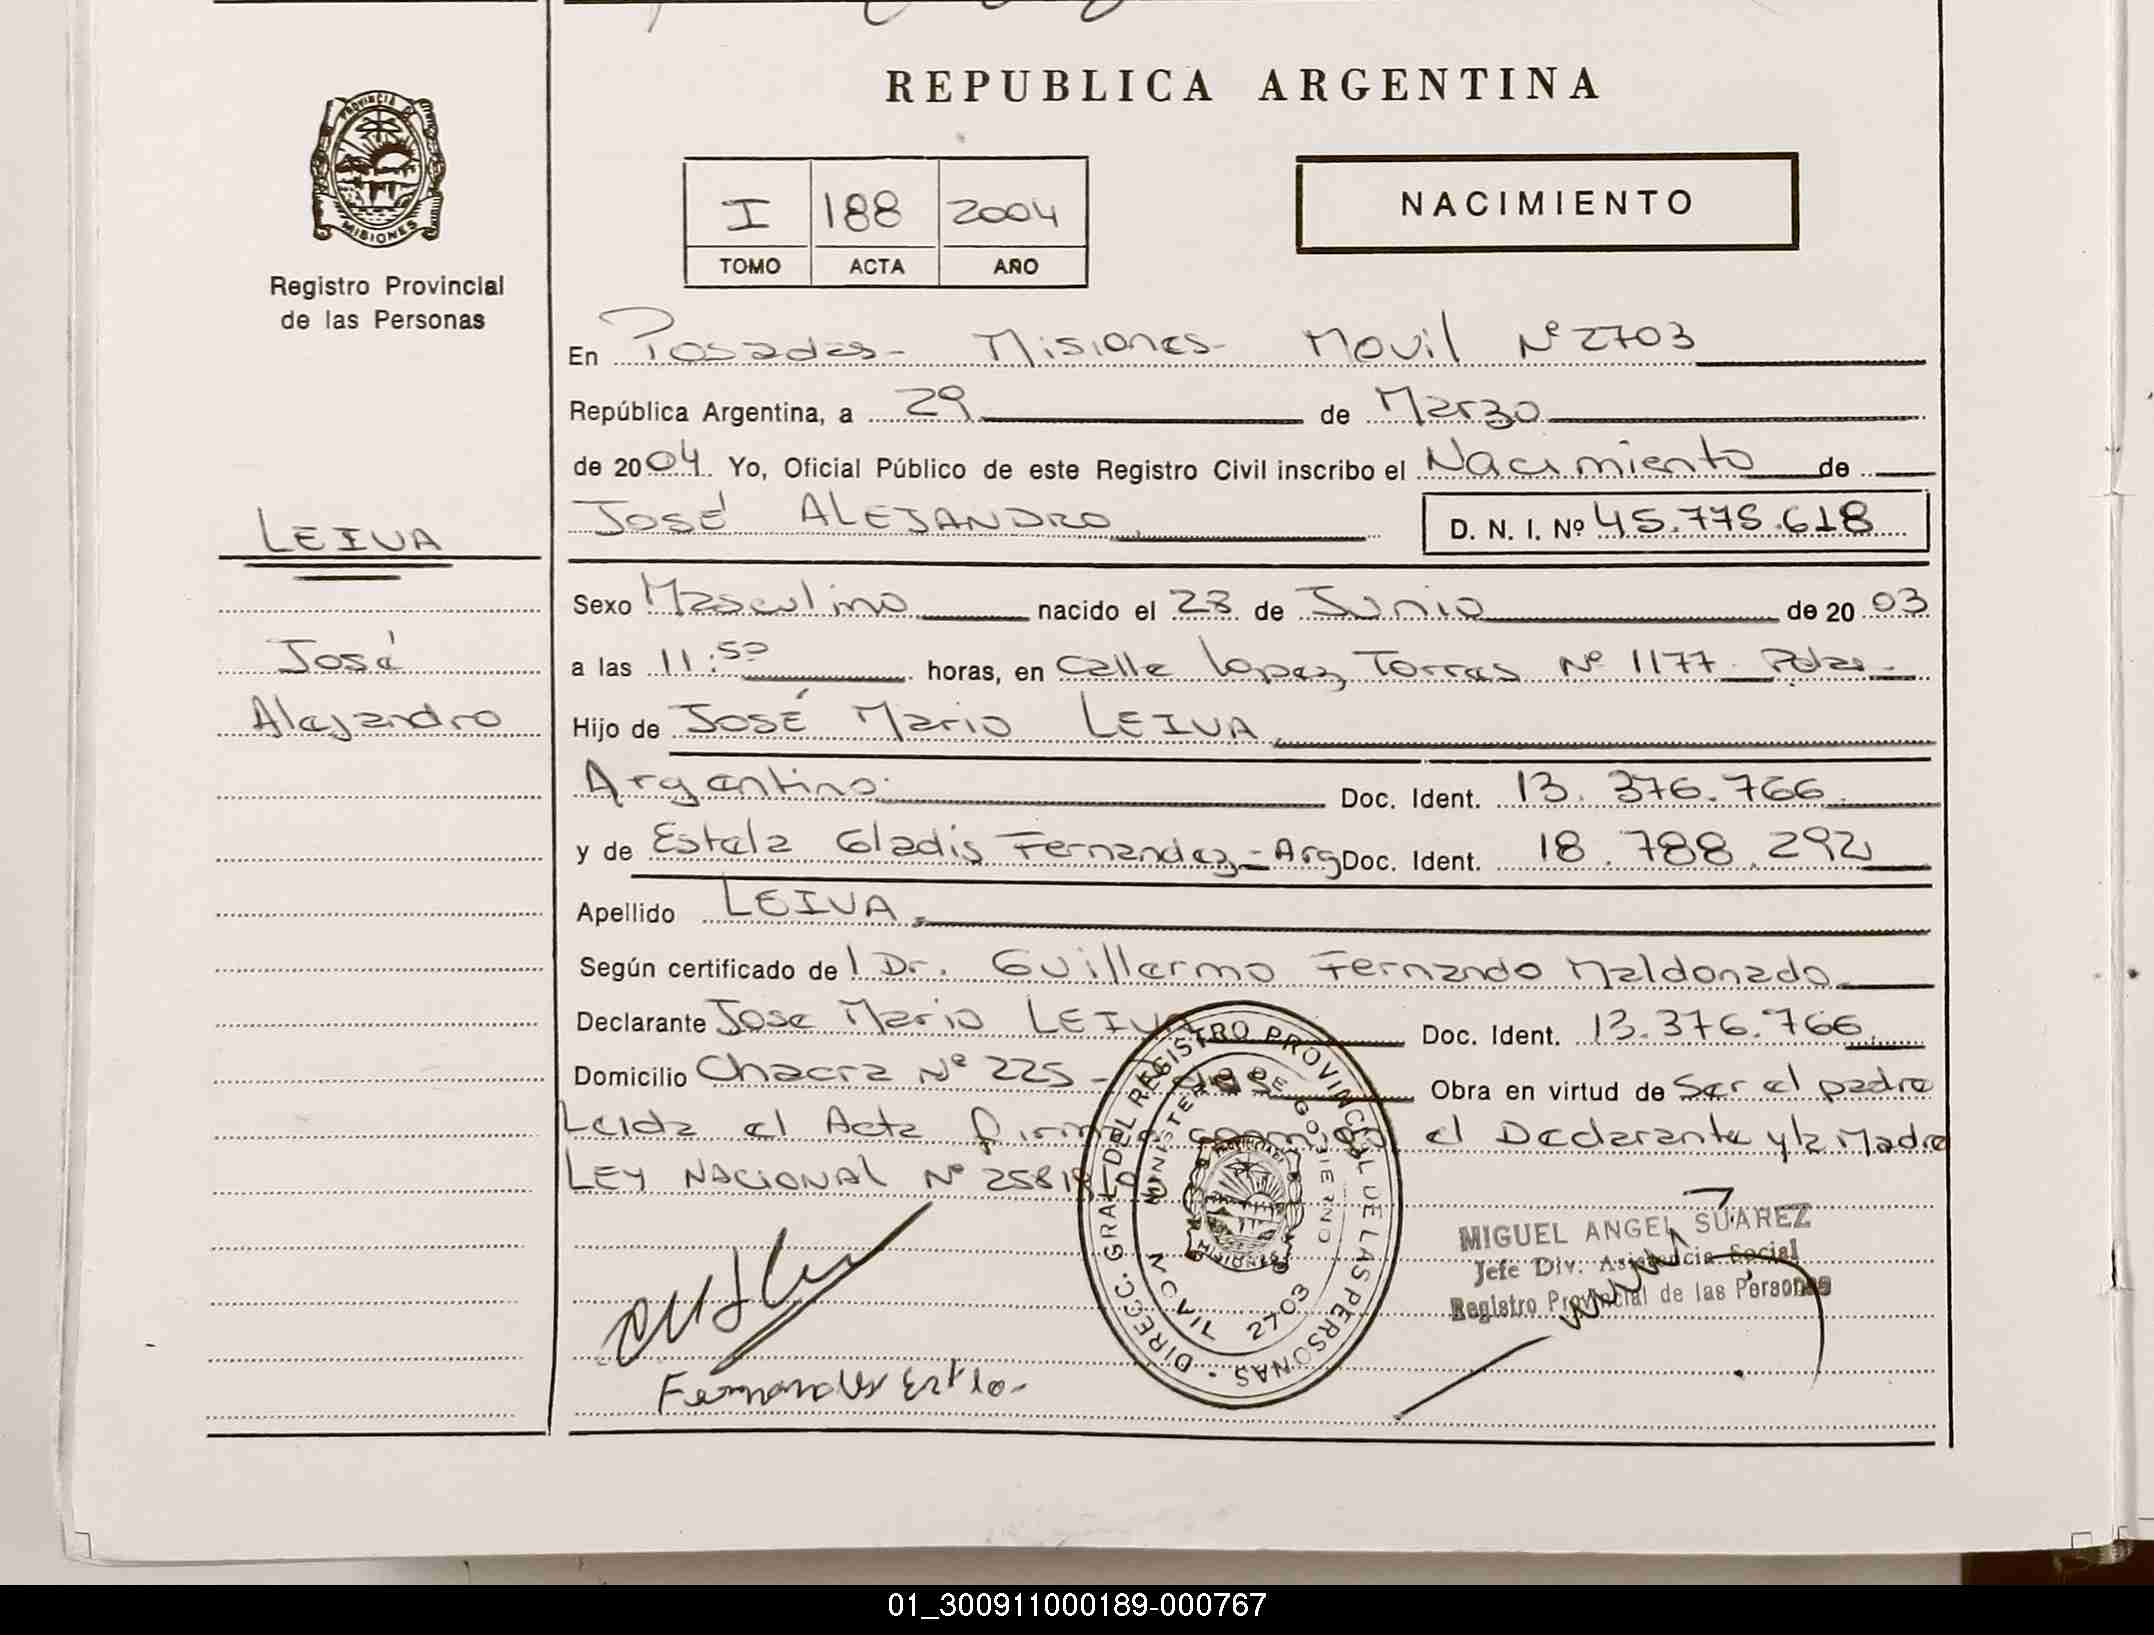 REPUBLICA ARGENTINA
PROVINCIA DE
MISIONES
Registro Provincial
de las Personas
I 188 2004
TOMO ACTA AÑO
NACIMIENTO
En Posadas- Misiones- Movil Nº 2703
República Argentina, a 29 de Marzo
de 2004 Yo, Oficial Público de este Registro Civil inscribo el Nacimiento de
JOSÉ ALEJANDRO D. N. I. Nº 45.775.618
LEIVA
José
Alejandro
Sexo Masculino nacido el 28 de Junio de 2003
a las 11:50 horas, en Calle Lopez Torres Nº 1177 - Pdas -
Hijo de JOSÉ Mario LEIVA
Argentino. Doc. Ident. 13.376.766
y de Estela Gladis Fernandez - Arg Doc. Ident. 18.788.292
Apellido LEIVA
Según certificado de l Dr. Guillermo Fernando Maldonado
Declarante Jose Mario LEIVA Doc. Ident. 13.376.766
Domicilio Chacra Nº 225 - Obra en virtud de Ser el padre
Leida el Acta firman conmigo el Declarante y la Madre
LEY NACIONAL Nº 25819
DIRECC. GRAL. DEL REGISTRO PROVINCIAL DE LAS PERSONAS
MINISTERIO DE GOBIERNO
MISIONES
MOVIL 2703
MIGUEL ANGEL SUAREZ
Jefe Div. Asistencia Social
Registro Provincial de las Personas
Fernandez Estela-
01_300911000189-000767